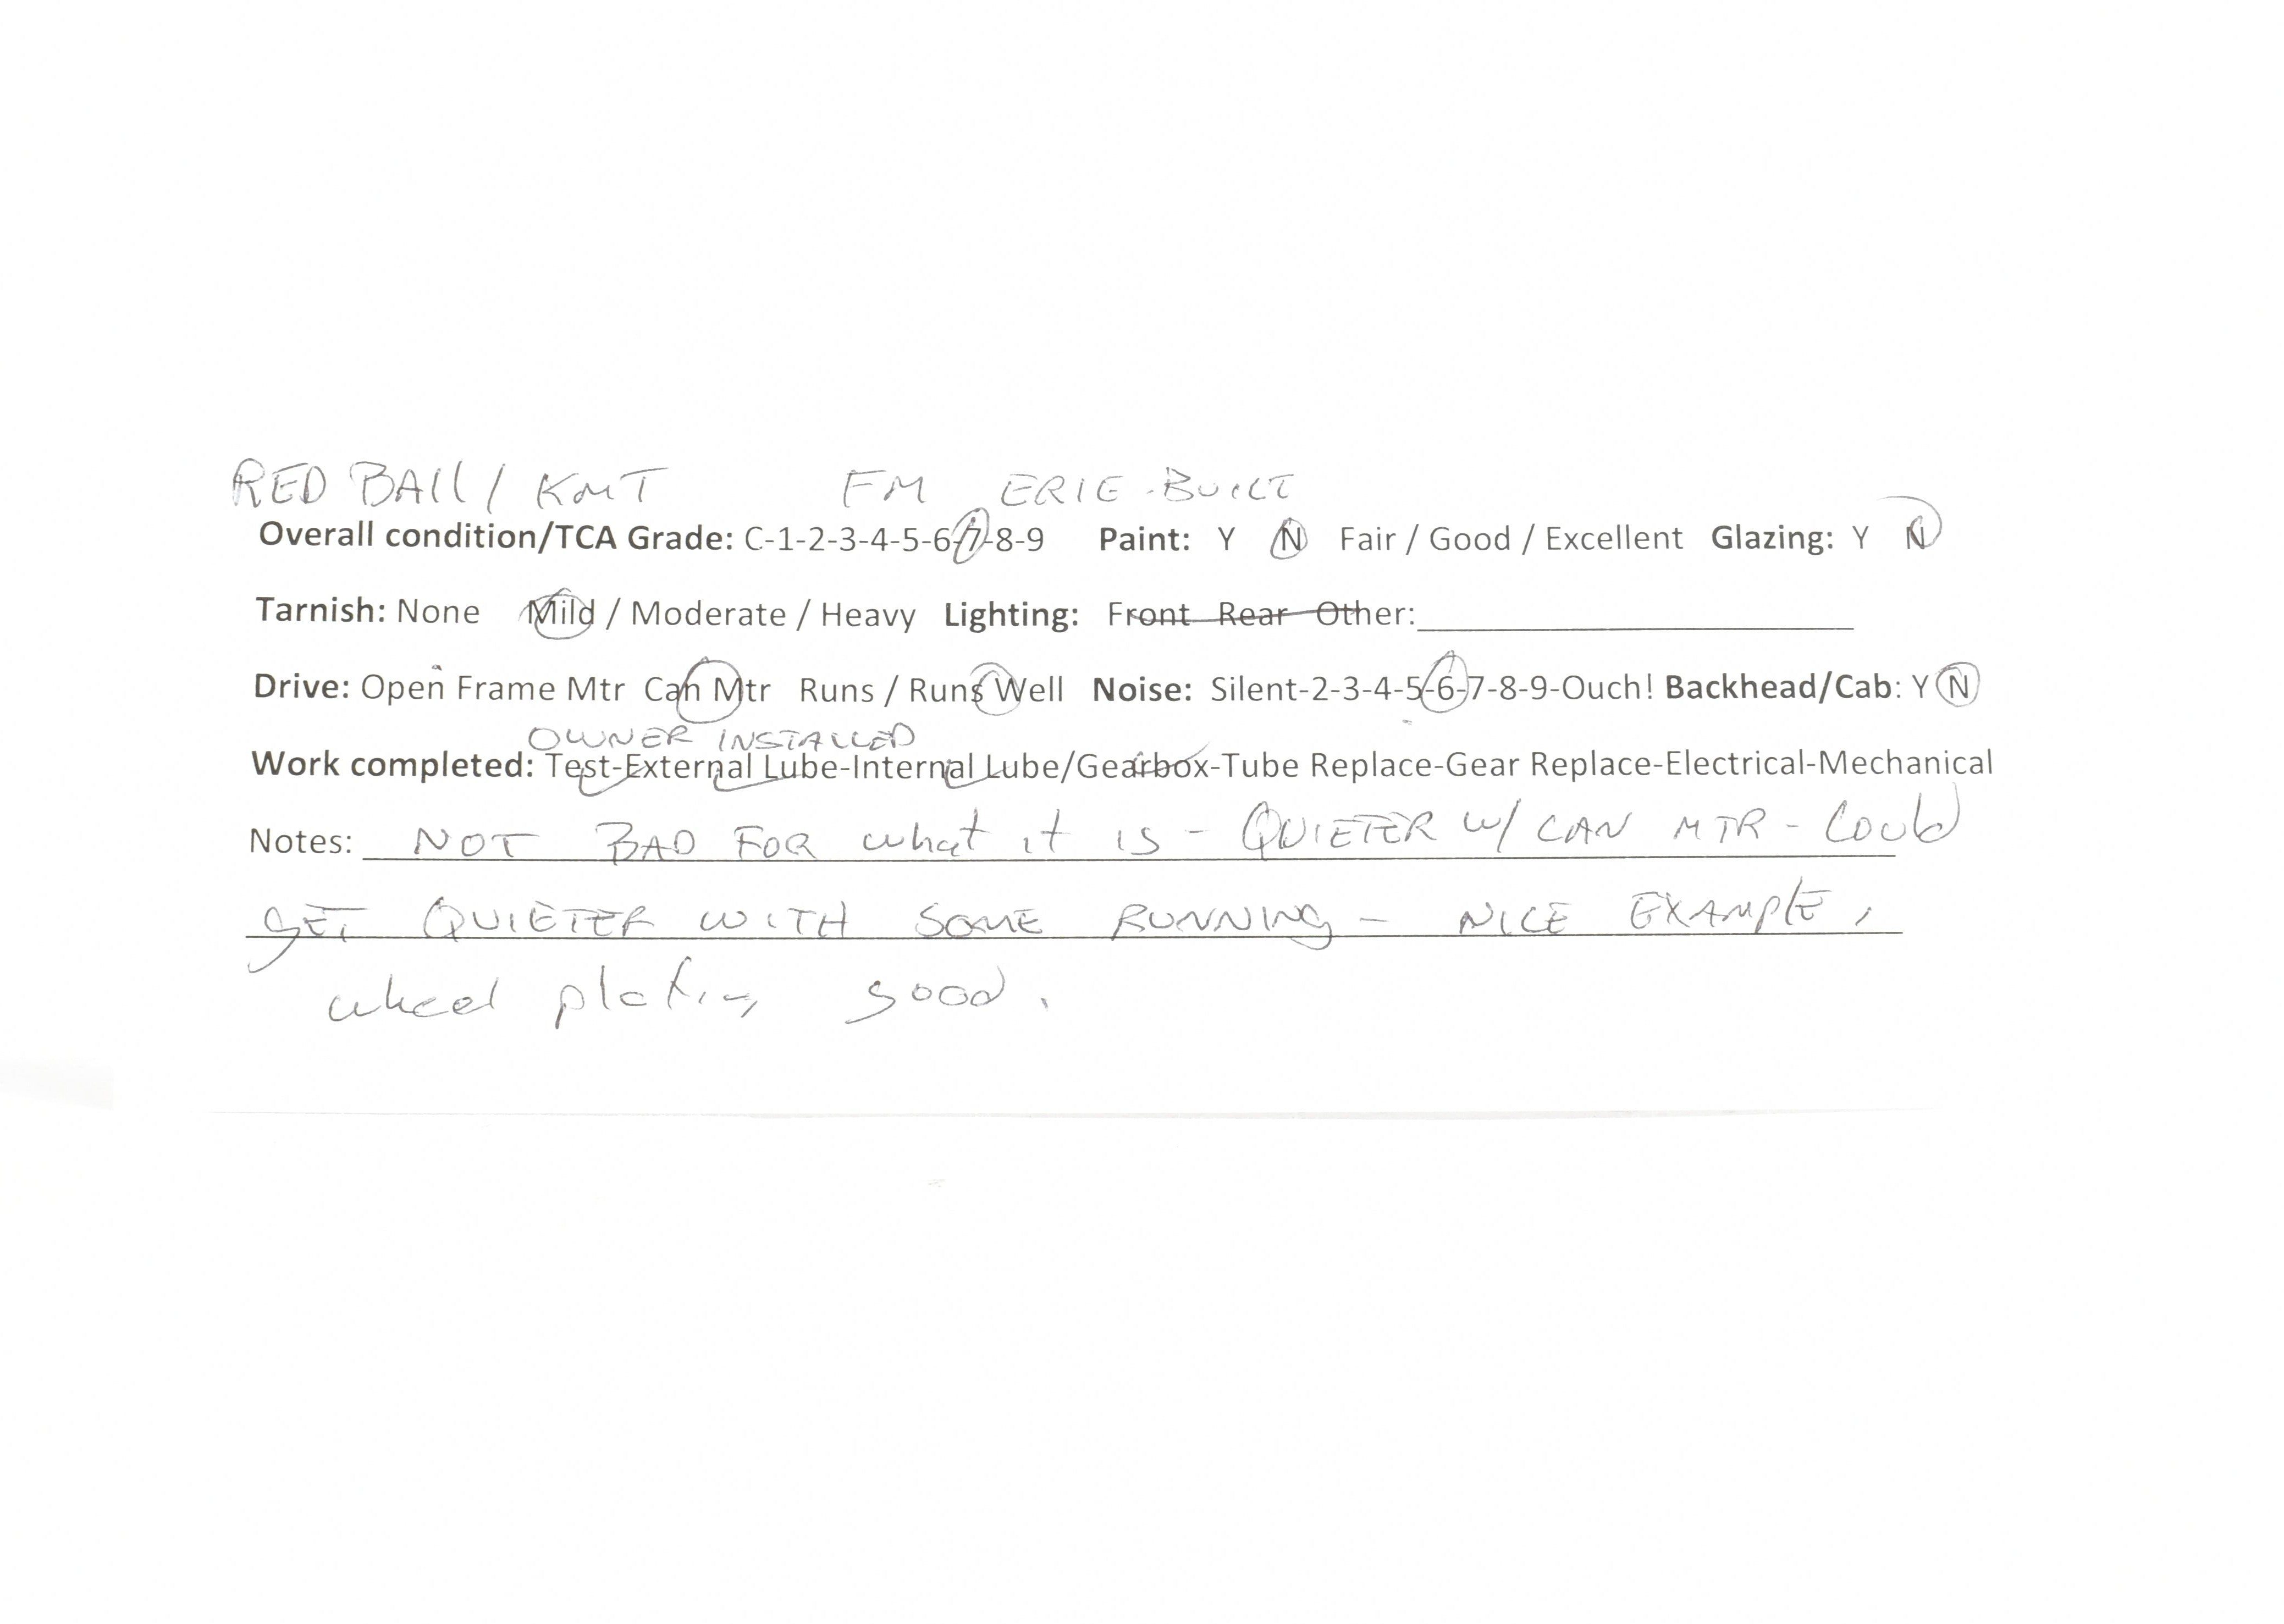 RED BALL / KMT FM ERIE-BUILT
Overall condition/TCA Grade: C-1-2-3-4-5-6-7-8-9 Paint: Y N Fair / Good / Excellent Glazing: Y N
Tarnish: None Mild / Moderate / Heavy Lighting: Front Rear Other:
Drive: Open Frame Mtr Can Mtr Runs / Runs Well Noise: Silent-2-3-4-5-6-7-8-9-Ouch! Backhead/Cab: Y N
OWNER INSTALLED
Work completed: Test-External Lube-Internal Lube/Gearbox-Tube Replace-Gear Replace-Electrical-Mechanical
Notes: NOT BAD FOR what it is - QUIETER w/ CAN MTR - Could
GET QUIETER WITH SOME RUNNING - NICE EXAMPLE,
wheel plating good.